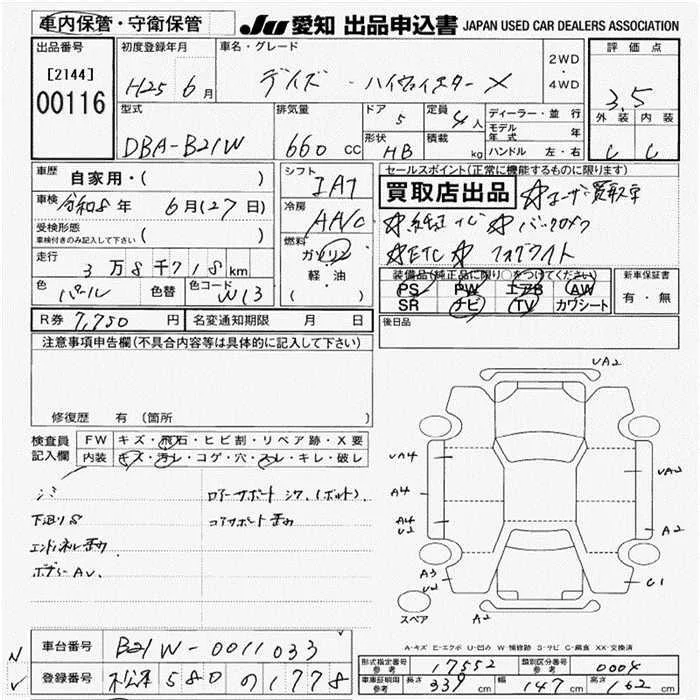 車内保管・守衛保管
JU 愛知 出品申込書 JAPAN USED CAR DEALERS ASSOCIATION
出品番号
[2144]
00116
初度登録年月
H25 6月
車名・グレード
デイズ・ハイウェイスターX
2WD
・
4WD
評価点
3.5
外装 内装
C C
型式
DBA-B21W
排気量
660 cc
ドア
5
形状
HB
定員
4人
積載
kg
ディーラー・並行
モデル年式 年
ハンドル 左・右
車歴
自家用・( )
車検 令和8年 6月(27日)
受検形態
車検付きのみ記入して下さい ( )
走行
3万8千718km
色 パール 色替 色コード W13
シフト
IAT
冷房
AAC
燃料
ガソリン
軽・油
( ・ )
セールスポイント(正常に機能するものに限ります)
買取店出品 ☆ユーザー買取車
☆純正ナビ ☆バックカメラ
☆ETC ☆フォグライト
装備品(純正品に限り○をつけてください)
PS PW エアB AW
SR ナビ TV カワシート
新車保証書
有・無
R券 7,750 円 名変通知期限 月 日
後日品
注意事項申告欄(不具合内容等は具体的に記入して下さい)
修復歴 有(箇所 )
検査員
記入欄
FW キズ・飛石・ヒビ割・リペア跡・X要
内装 キズ・汚レ・コゲ・穴・スレ・キレ・破レ
下廻り8
ボデーAU.
UA2
UA4
A4
A4
U2
A3
U2
A2
UA2
A2
C1
スペア
A-キズ E-エクボ U-凹み W-補修跡 S-サビ C-腐食 XX-交換済
車台番号 B21W-0011033
登録番号 松本 580 の1778
形式指定番号
参考 17552
類別区分番号
参考 0004
車庫証明用
参考 長さ 339 cm 幅 147 cm 高さ 162 cm